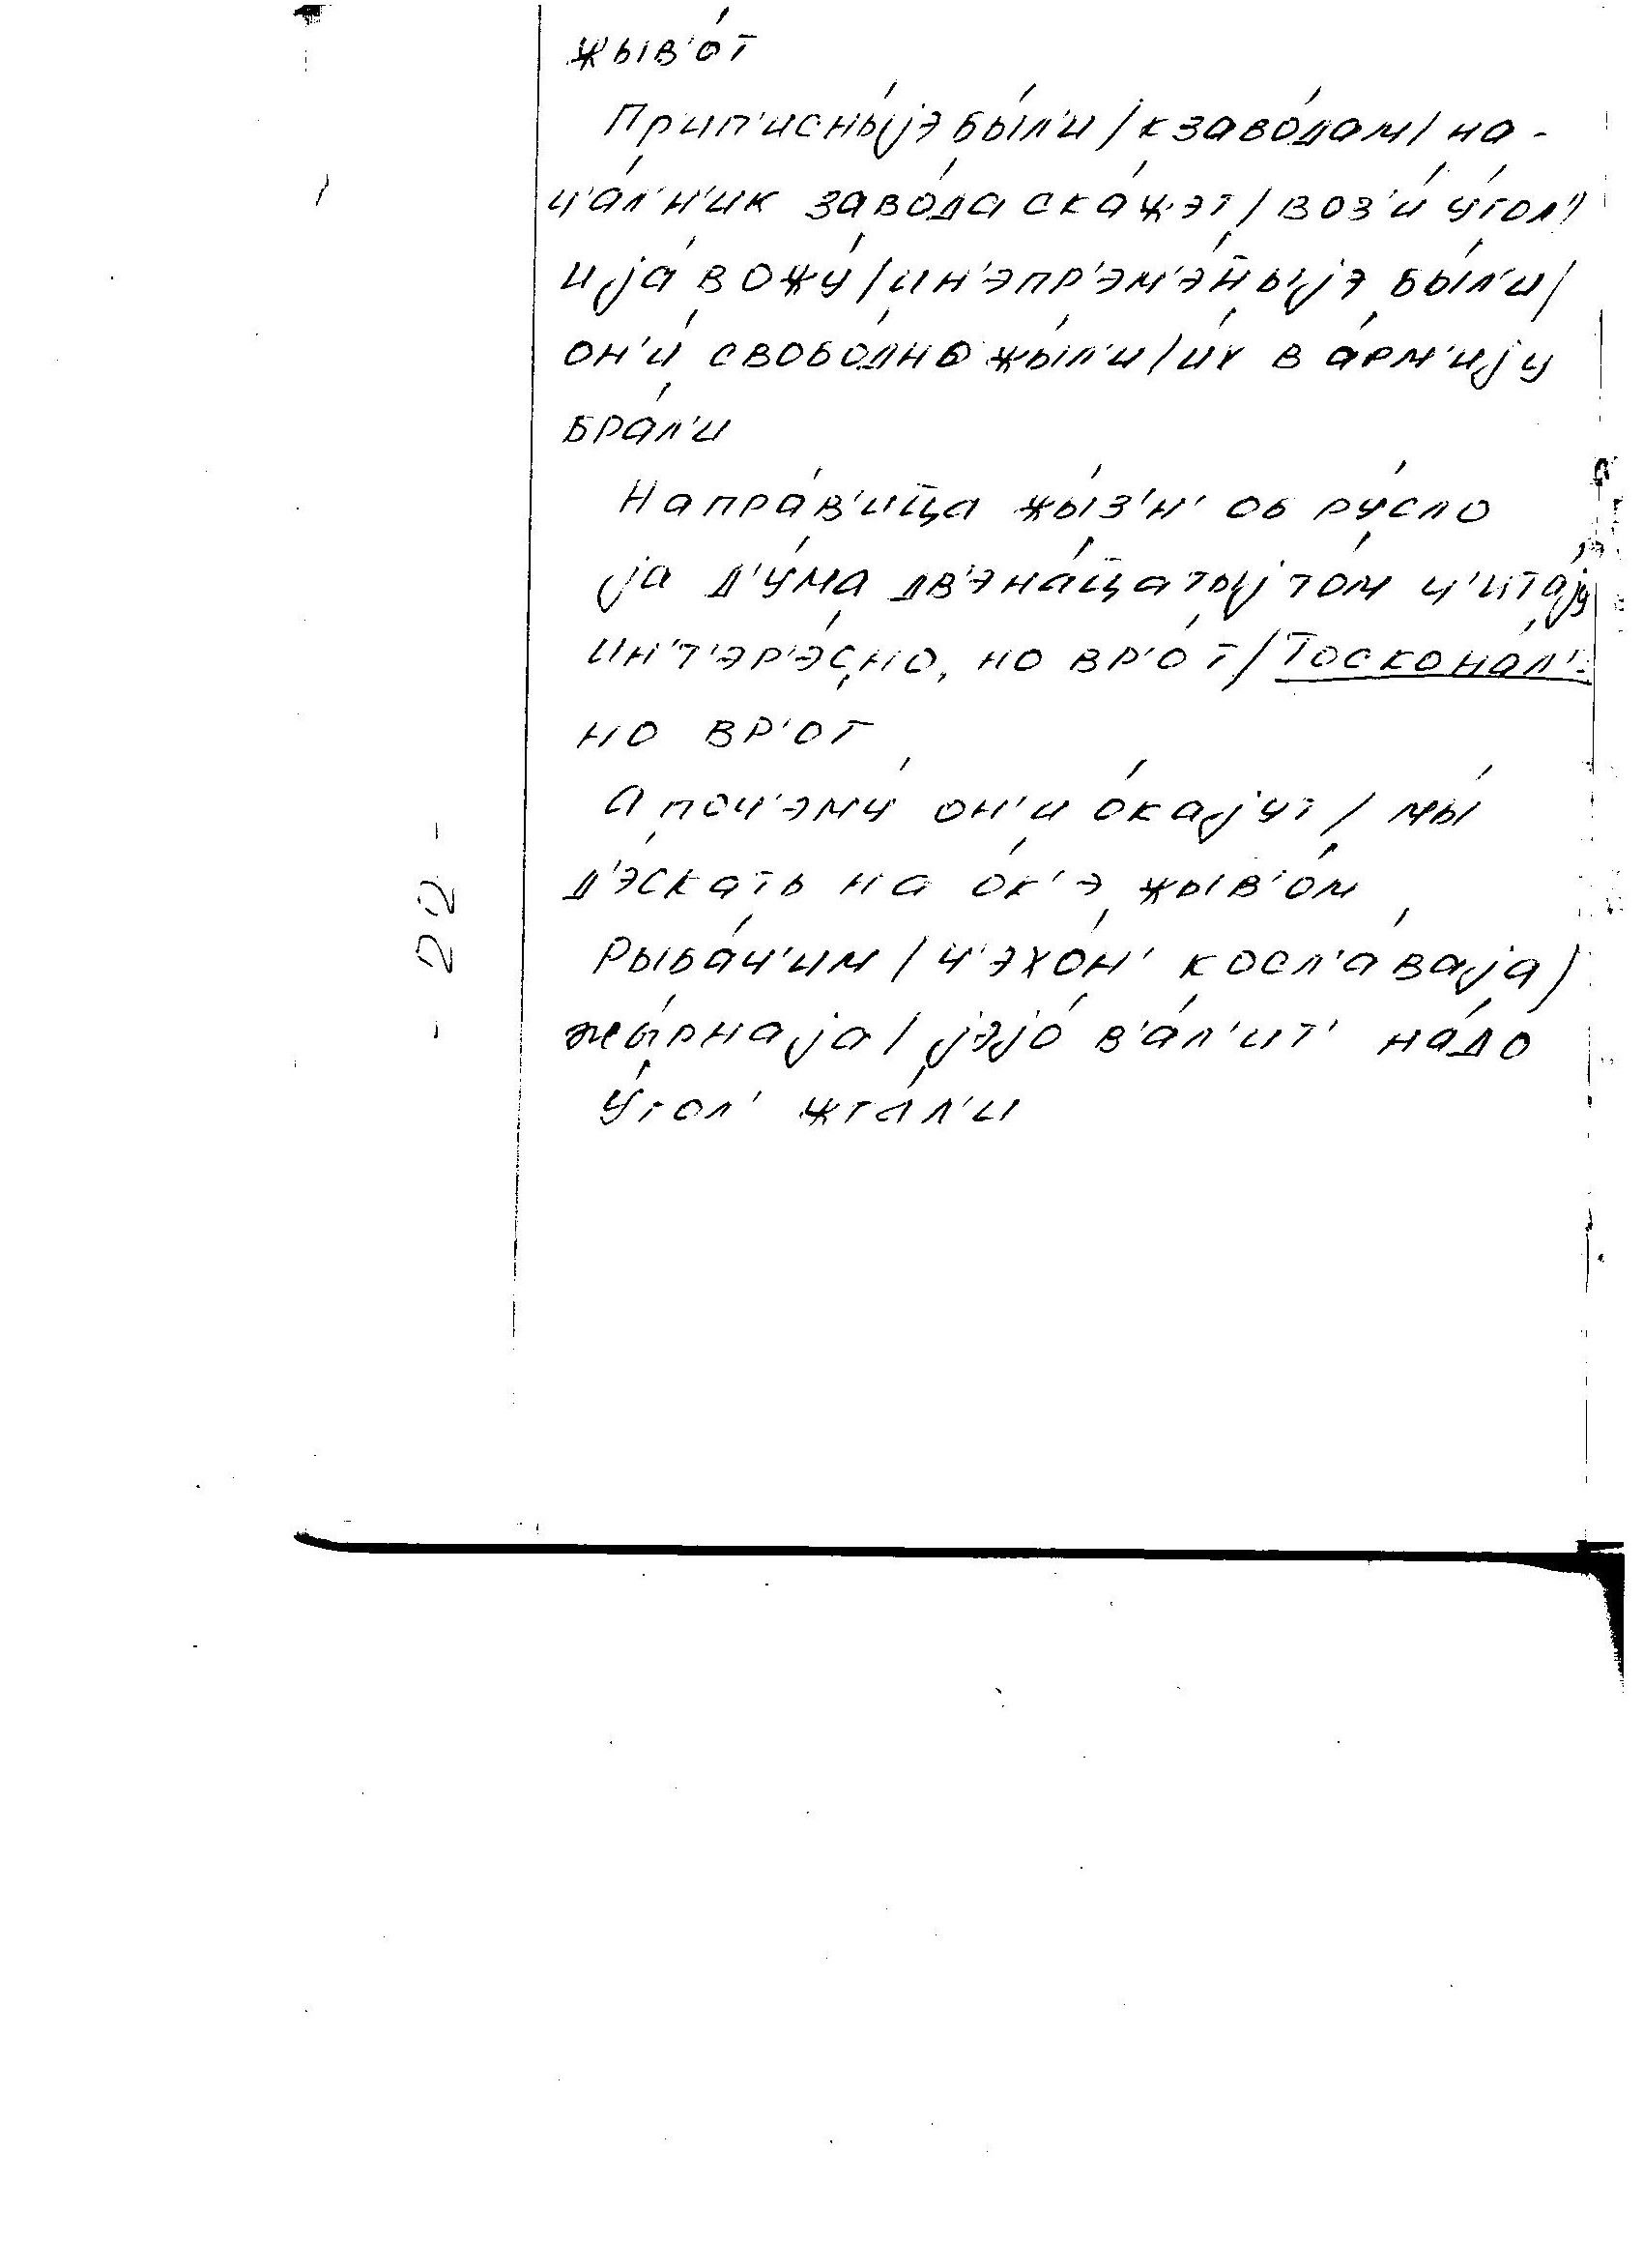 жыв'о́т
Прип'исны́јэ бы́л'и / к заво́дам / на-
ч'а́л'н'ик заво́да ска́жэт / воз'и́ у́гол' /
и ја́ вожу́ / и н'эпр'эм'э́н̄ыјэ бы́л'и /
он'и́ свобо́дно жы́л'и / и́х в а́рм'ију
бра́л'и
Напра́в'ищ̄а жы́з'н' об ру́сло
ја д'у́ма дв'эна́ц̄атыј то́м ч'ита́ју
ин'т'эр'э́сно, но вр'о́т / Тоскона́л'-
но вр'о́т
А поч'эму́ он'и о́кајут / мы́
д'э́скать на о́к'э жыв'о́м
Рыба́ч'им / ч'эхо́н' косл'а́ваја /
жы́рнаја / јэјо́ в'а́л'ит' на́до
У́гол' жга́л'и
- 22 -